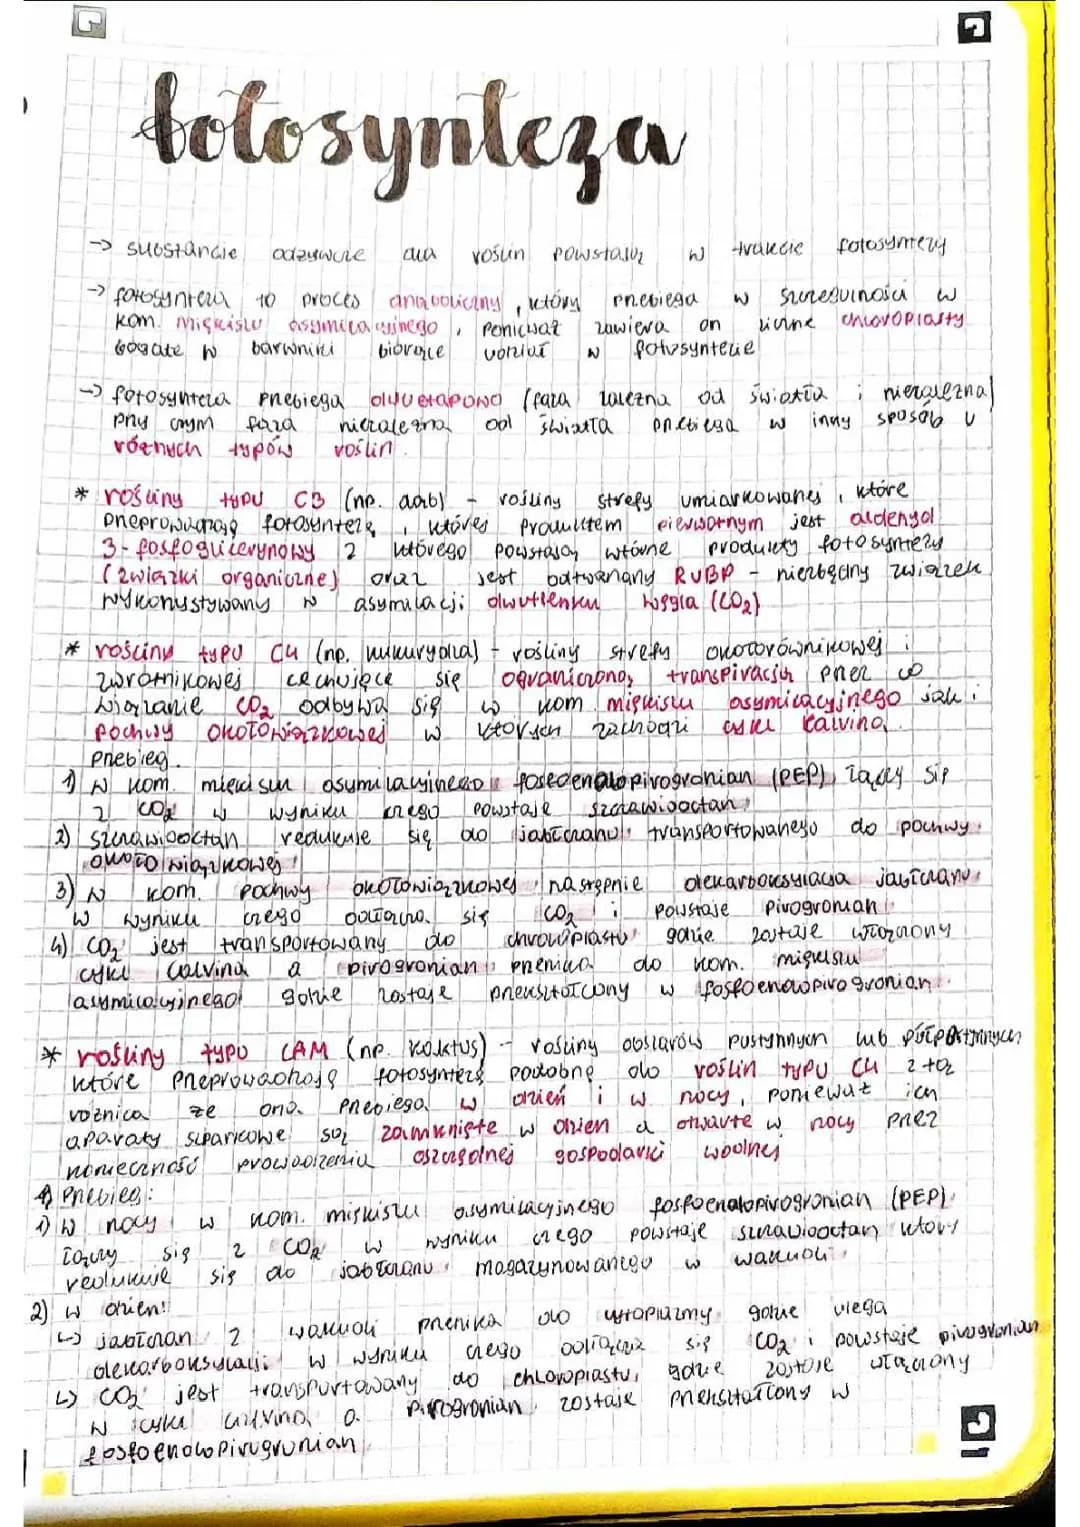 fotosynteza
→ substancje odżywcze dla roślin powstają w trakcie fotosyntezy
→ fotosynteza to proces anaboliczny, który przebiega w szczególności w
kom. miękiszu asymilacyjnego, ponieważ zawiera on liczne chloroplasty
bogate w barwniki biorące udział w fotosyntezie
→ fotosynteza przebiega dwuetapowo (faza zależna od światła i niezależna)
przy czym faza niezależna od światła przebiega w inny sposób u
różnych typów roślin.
* rośliny typu C3 (np. dąb) - rośliny strefy umiarkowanej, które
przeprowadzają fotosyntezę, której produktem pierwotnym jest aldehyd
3-fosfoglicerynowy z którego powstają wtórne produkty fotosyntezy
(związki organiczne) oraz jest odtwarzany RUBP - niezbędny związek
wykorzystywany w asymilacji dwutlenku węgla (CO₂)
* rośliny typu C4 (np. kukurydza) - rośliny strefy okołorównikowej i
zwrotnikowej cechujące się ograniczoną transpiracją przez co
wiązanie CO₂ odbywa się w kom. miękiszu asymilacyjnego jak i
pochwy okołowiązkowej w których zachodzi cykl Calvina.
Przebieg.
1) W kom. miękiszu asymilacyjnego fosfoenolopirogronian (PEP) łączy się
z CO₂ w wyniku czego powstaje szczawiooctan
2) szczawiooctan redukuje się do jabłczanu transportowanego do pochwy
okołowiązkowej
3) W kom. pochwy okołowiązkowej następnie dekarboksylacja jabłczanu
w wyniku czego odłącza się CO₂ i powstaje pirogronian
4) CO₂ jest transportowany do chloroplastu gdzie zostaje włączony
cykl Calvina a pirogronian przenika do kom. miękiszu
asymilacyjnego gdzie zostaje przekształcony w fosfoenolopirogronian.
* rośliny typu CAM (np. kaktus) - rośliny obszarów pustynnych lub półpustynnych
które przeprowadzają fotosyntezę podobną do roślin typu C4 z tą
różnicą że ona przebiega w dzień i w nocy, ponieważ ich
aparaty szparkowe są zamknięte w dzień a otwarte w nocy przez
konieczność prowadzenia oszczędnej gospodarki wodnej
Przebieg:
1) W nocy w kom. miękiszu asymilacyjnego fosfoenolopirogronian (PEP)
łączy się z CO₂ w wyniku czego powstaje szczawiooctan który
redukuje się do jabłczanu magazynowanego w wakuoli
2) w dzień:
↳ jabłczan z wakuoli przenika do cytoplazmy gdzie ulega
dekarboksylacji w wyniku czego odłącza się CO₂ i powstaje pirogronian
↳ CO₂ jest transportowany do chloroplastu, gdzie zostaje włączony
w cykl Calvina a pirogronian zostaje przekształcony w
fosfoenolopirogronian